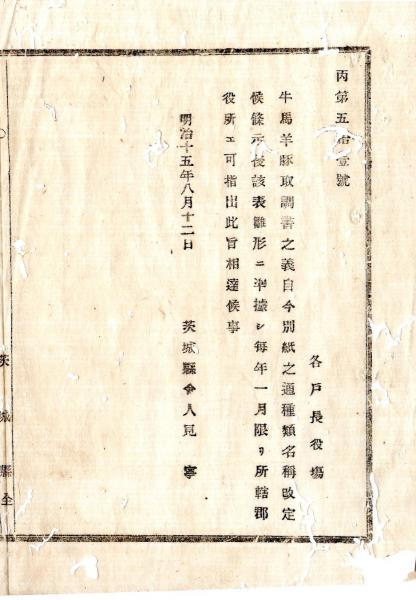 丙第五拾壹號
各戸長役塲
牛馬羊豚取調書之義自今別紙之通種類名稱改定
候條示後該表雛形ニ準據シ毎年一月限リ所轄郡
役所エ可指出此旨相達候事
明治十五年八月十二日
茨城縣令人見寧
茨城縣